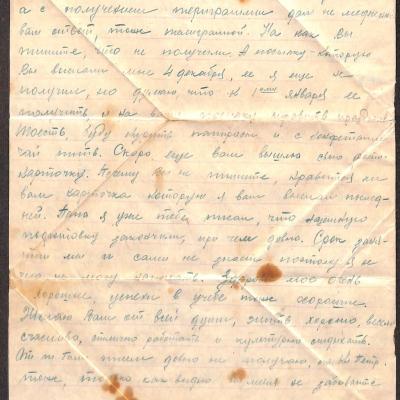 а с получением телеграммы дал не медлен
вам ответ, тоже телеграммой. На как вы
пишите, что не получили. А посылку которую
Вы выслали мне 4 декабря, её я еще не
получил, но думаю, что к 1 января ее
получить, и на
буду курить папиросы и с конфетами
чай пить. Скоро еще вам вышлю свою фото
карточку. Почему вы не пишите, нравится ли
вам карточка которую я вам выслал послед-
ней. Я уже тебе писал, что
подготовку закончили, при чем давно. Срок
мы и сами не знаем поэтому я не
могу написать. Здоровье мое очень
хорошее, успехи в учебе тоже хорошие.
Желаю Вам от всей души, жить хорошо, весело
счастливо, отлично работать и культурно отдыхать.
От писем давно не получаю, от Петр.
тоже, только как видно меня не забывайте